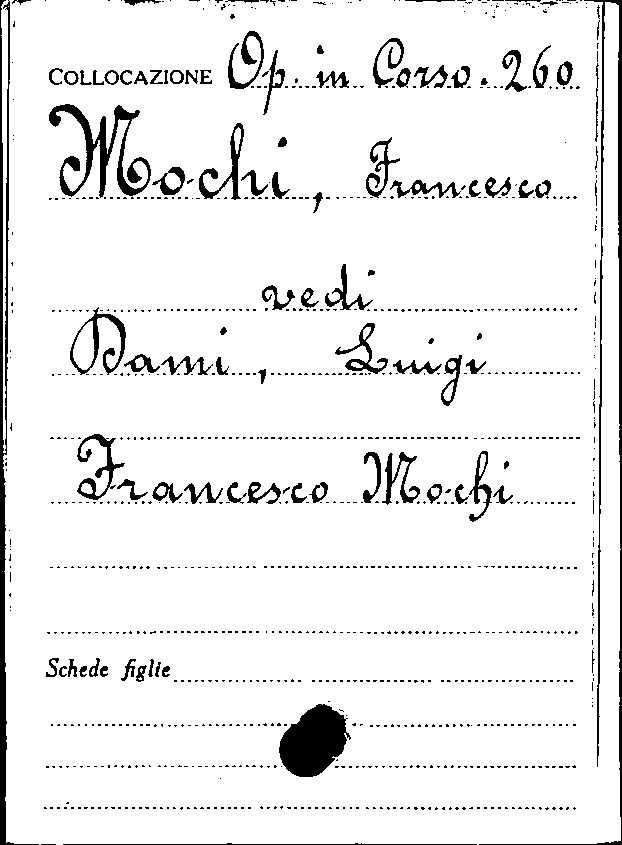 COLLOCAZIONE Op. in Corso. 260
Mochi, Francesco
vedi
Dami, Luigi
Francesco Mochi
Schede figlie